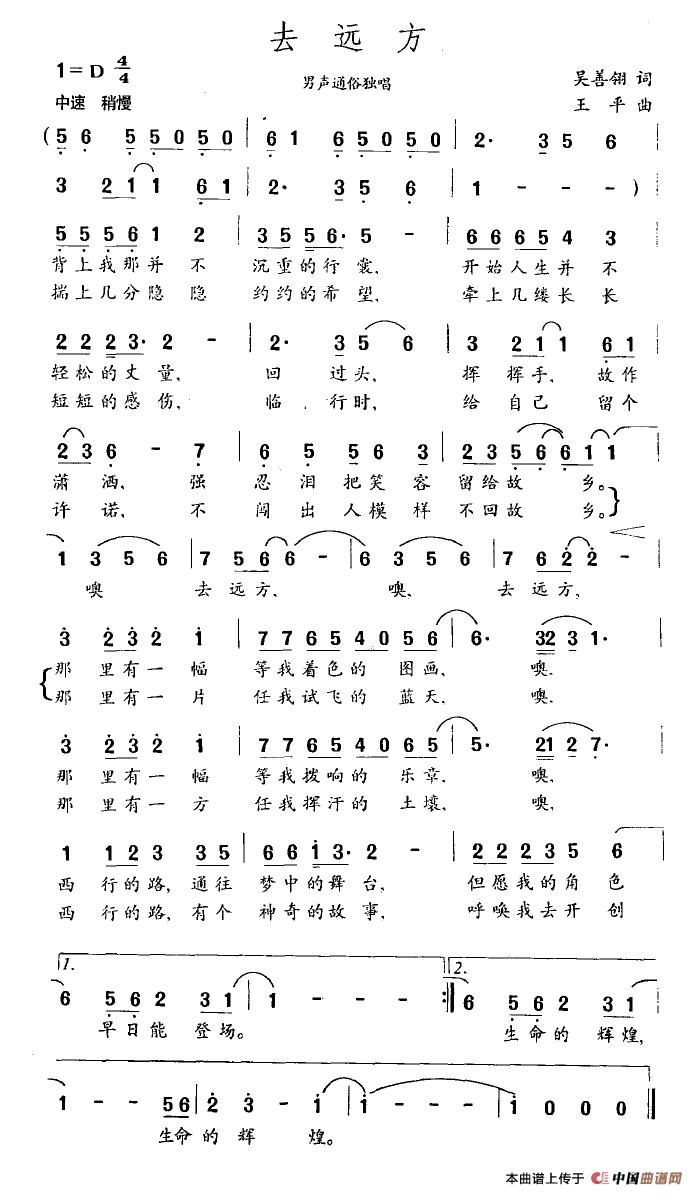 去远方
1=D 4/4
男声通俗独唱
吴善翎 词
中速 稍慢
王平 曲
(5 6 5 5 0 5 0 | 6 1 6 5 0 5 0 | 2· 3 5 6
3 2 1 1 6 1 | 2· 3 5 6 | 1 - - - )
5 5 5 6 1 2 | 3 5 5 6· 5 - | 6 6 6 5 4 3 |
背上我那并不 沉重的行囊, 开始人生并不
揣上几分隐隐 约约的希望, 牵上几缕长长
2 2 2 3· 2 - | 2· 3 5 6 | 3 2 1 1 6 1 |
轻松的丈量, 回过头, 挥挥手, 故作
短短的感伤, 临行时, 给自己留个
2 3 6 - 7 | 6 5 5 6 3 | 2 2 3 5 6 6 1 1 |
潇洒, 强 忍泪把笑容 留给故乡。
许诺, 不 闯出人模样 不回故乡。
1 3 5 6 | 7 5 6 6 - | 6 3 5 6 | 7 6 2 2 -
噢 去远方, 噢, 去远方,
3 2 3 2 1 | 7 7 6 5 4 0 5 6 | 6· 3 2 3 1·
那里有一幅 等我着色的图画, 噢.
那里有一片 任我试飞的蓝天, 噢.
3 2 3 2 1 | 7 7 6 5 4 0 6 5 | 5· 2 1 2 7·
那里有一幅 等我拨响的乐章, 噢,
那里有一方 任我挥汗的土壤, 噢,
1 1 2 3 3 5 | 6 6 1 3· 2 - | 2 2 2 3 5 6
西行的路, 通往 梦中的舞台, 但愿我的角色
西行的路, 有个 神奇的故事, 呼唤我去开创
1. 2.
6 5 6 2 3 1 | 1 - - - :| 6 5 6 2 3 1 |
早日能登场。 生命的辉煌,
1 - - 5 6 | 2 3 - 1 | 1 - - - | 1 0 0 0 ||
生命的辉煌。
本曲谱上传于 中国曲谱网